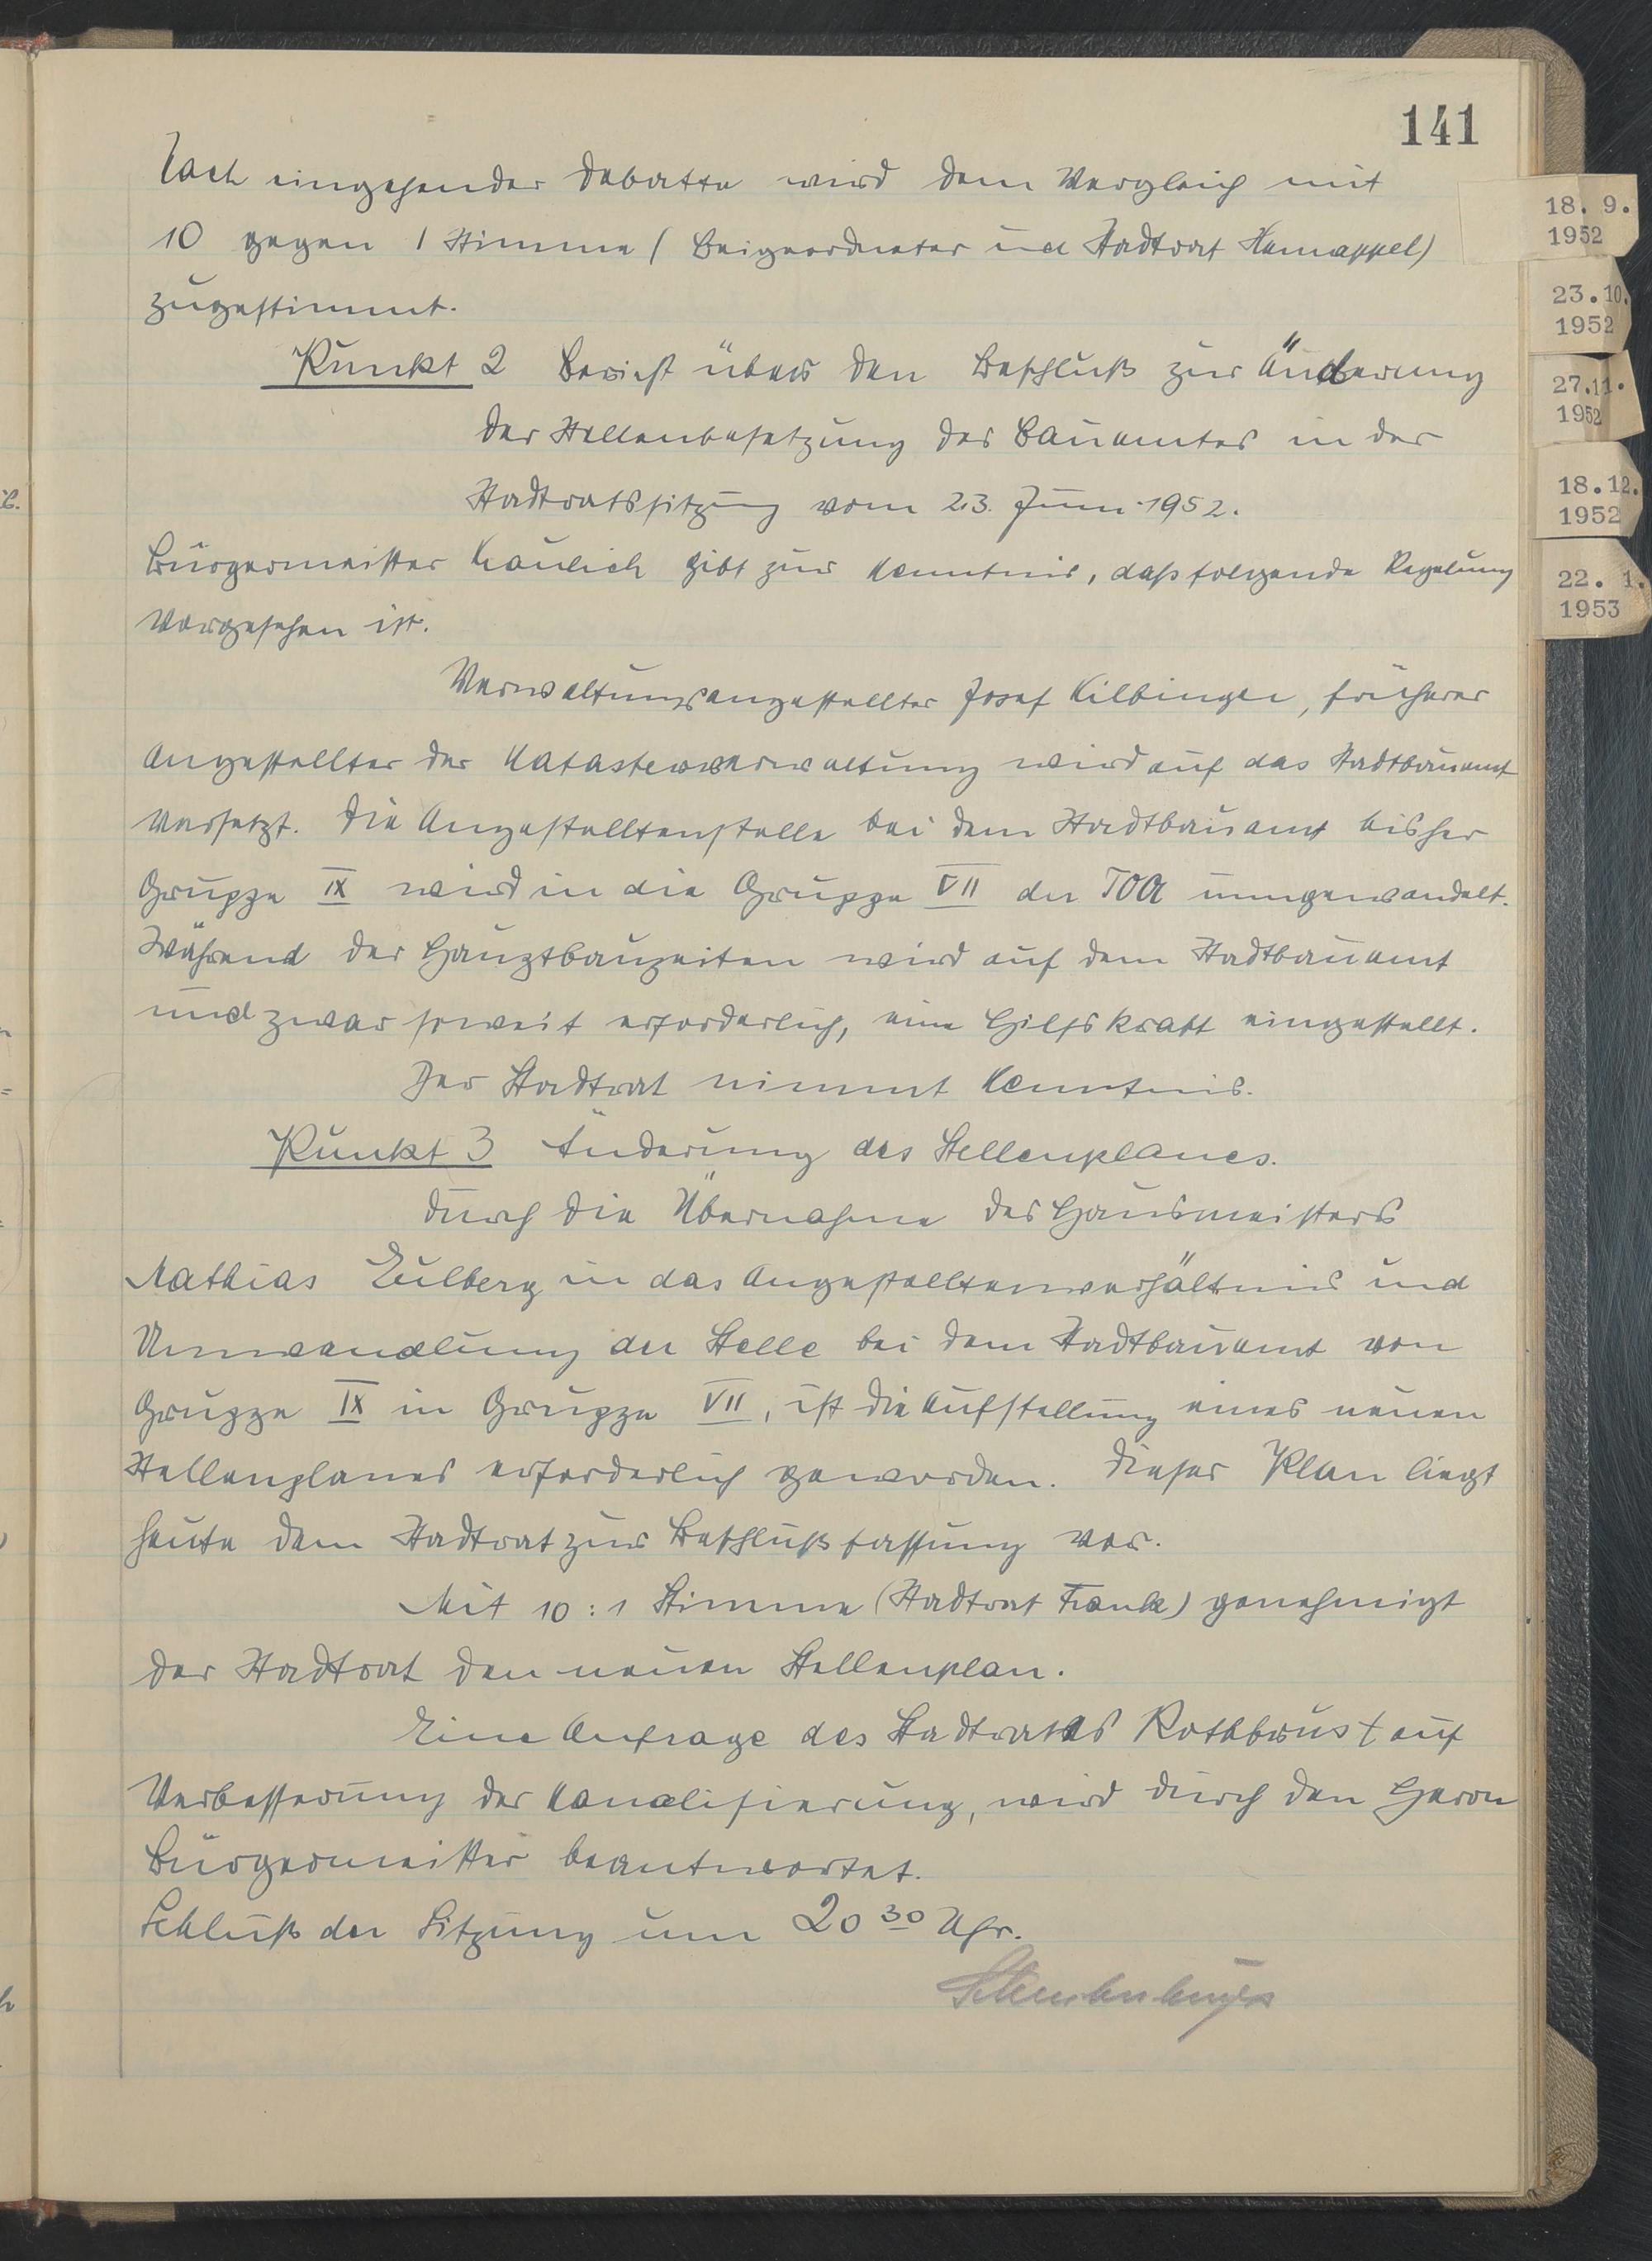 141
Nach eingehender Debatte wird dem Vergleich mit
10 gegen 1 Stimme (Beigeordneter und Stadtrat Hannappel)
zugestimmt.
Punkt 2 Bericht über den Beschluß zur Änderung
der Stellenbesetzung des Bauamtes in der
Stadtratssitzung vom 23. Juni 1952.
Bürgermeister Kaulich gibt zur Kenntnis, daß folgende Regelung
vorgesehen ist.
Verwaltungsangestellter Josef Kilbinger, früherer
Angestellter der Katasterverwaltung wird auf das Stadtbauamt
versetzt. Die Angestelltenstelle bei dem Stadtbauamt bisher
Gruppe IX wird in die Gruppe VII der TOA umgewandelt.
Während der Hauptbauzeiten wird auf dem Stadtbauamt
und zwar soweit erforderlich, eine Hilfskraft eingestellt.
Der Stadtrat nimmt Kenntnis.
Punkt 3 Änderung des Stellenplanes.
Durch die Übernahme des Hausmeisters
Mathias Eulberg in das Angestelltenverhältnis und
Umwandlung der Stelle bei dem Stadtbauamt von
Gruppe IX in Gruppe VII, ist die Aufstellung eines neuen
Stellenplanes erforderlich geworden. Dieser Plan liegt
heute dem Stadtrat zur Beschlußfassung vor.
Mit 10 : 1 Stimme (Stadtrat Frank) genehmigt
der Stadtrat den neuen Stellenplan.
Eine Anfrage des Stadtrates Rothbrust auf
Verbesserung der Kanalisierung, wird durch den Herrn
Bürgermeister beantwortet.
Schluß der Sitzung um 20 30 Uhr.
18. 9.
1952
23.10.
1952
27.11.
1952
18.12.
1952
22. 1.
1953